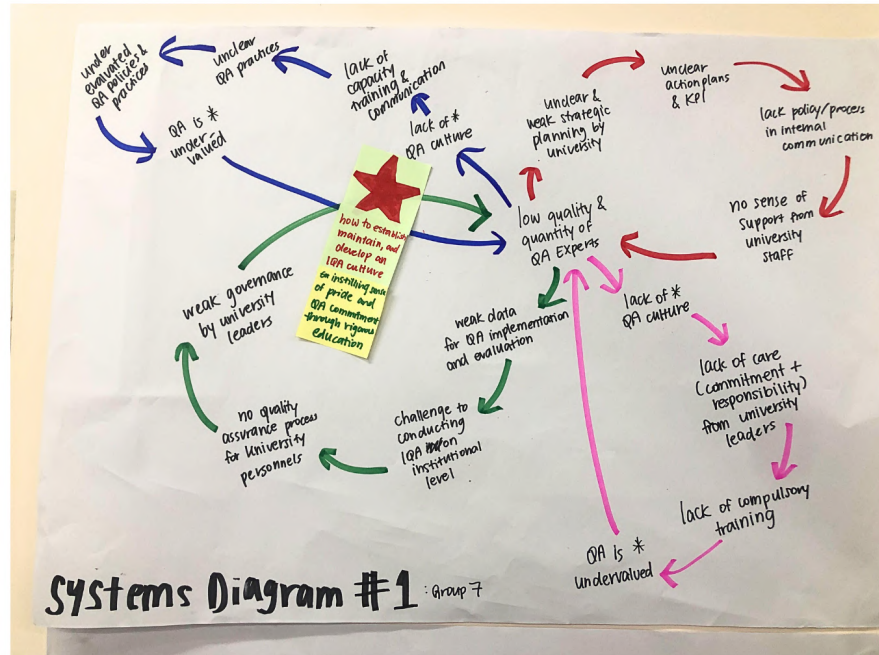 under
evaluated
QA policies &
practices
unclear
QA practices
lack of
capacity
training &
communication
lack of *
QA culture
QA is *
under
valued
unclear &
weak strategic
planning by
university
unclear
action plans
& KPI
lack policy/process
in internal
communication
no sense of
support from
university
staff
low quality &
quantity of
QA Experts
how to establish
maintain, and
develop an
IQA culture
on instilling sense
of pride and
QA commitment
through rigorous
education
weak governance
by university
leaders
weak data
for QA implementation
and evaluation
lack of *
QA culture
lack of care
(commitment +
responsibility)
from university
leaders
no quality
assurance process
for University
personnels
challenge to
conducting
IQA on
institutional
level
lack of compulsory
training
QA is *
undervalued
Systems Diagram #1 : Group 7